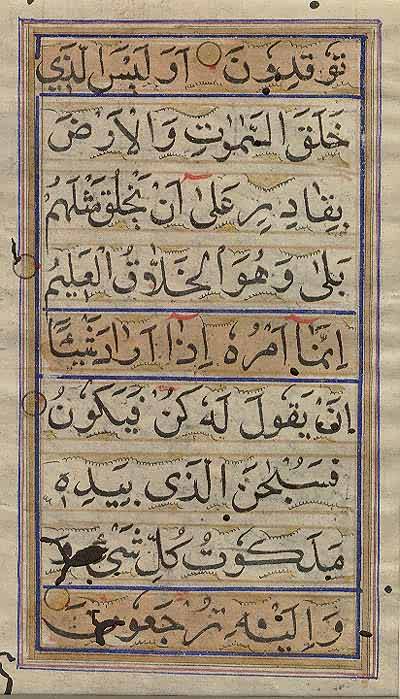 تُوقِدُونَ أَوَلَيْسَ الَّذِي
خَلَقَ السَّمٰوٰتِ وَالْأَرْضَ
بِقَادِرٍ عَلٰى أَنْ يَخْلُقَ مِثْلَهُمْ
بَلٰى وَهُوَ الْخَلَّاقُ الْعَلِيمُ
إِنَّمَا أَمْرُهُ إِذَا أَرَادَ شَيْئًا
أَنْ يَقُولَ لَهُ كُنْ فَيَكُونُ
فَسُبْحٰنَ الَّذِي بِيَدِهِ
مَلَكُوتُ كُلِّ شَيْءٍ
وَإِلَيْهِ تُرْجَعُونَ